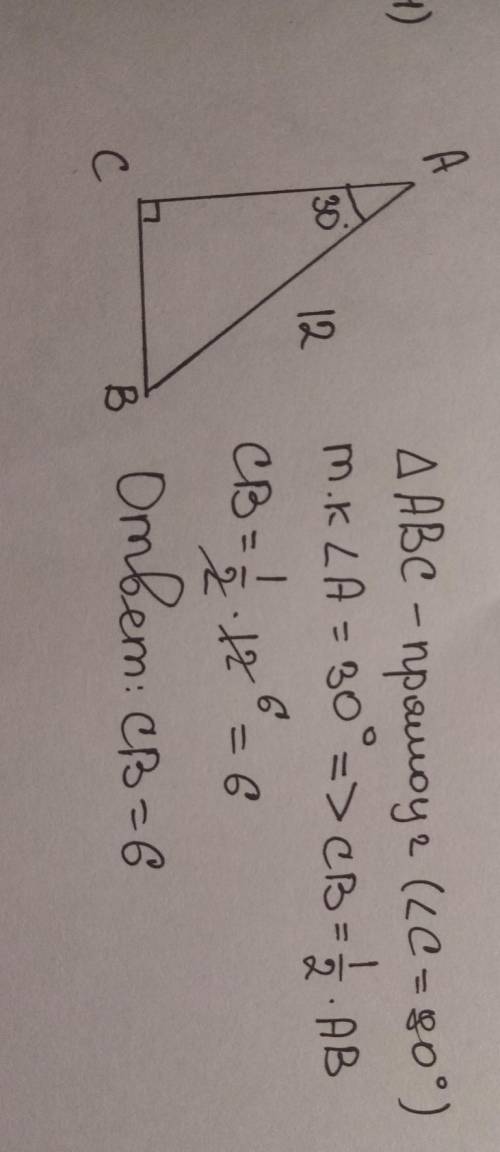 1)
A
30°
12
C
B
△ABC – прямоуг (∠C = 90°)
т.к ∠A = 30° => CB = 1/2 · AB
CB = 1/2 · 12 6 = 6
Ответ: CB = 6